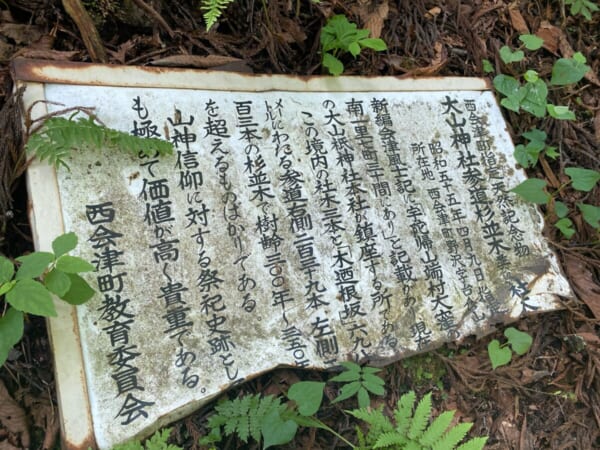 西会津町指定天然記念物
大山神社参道杉並木
昭和五十五年四月九日
所在地 西会津町野沢字
新編会津風土記に宇陀帰山端村大窪の
南一里二町三十間にありと記載があり 現在
の大山祇神社本社が鎮座する所である
この境内の社木三本と木洒根坂六九八
メートルにわたる参道右側二百三十九本 左側
百三本の杉並木で樹齢三〇〇年～三五〇年
を超えるものばかりである
山神信仰に対する祭祀史跡とし
も極めて価値が高く貴重である。
西会津町教育委員会